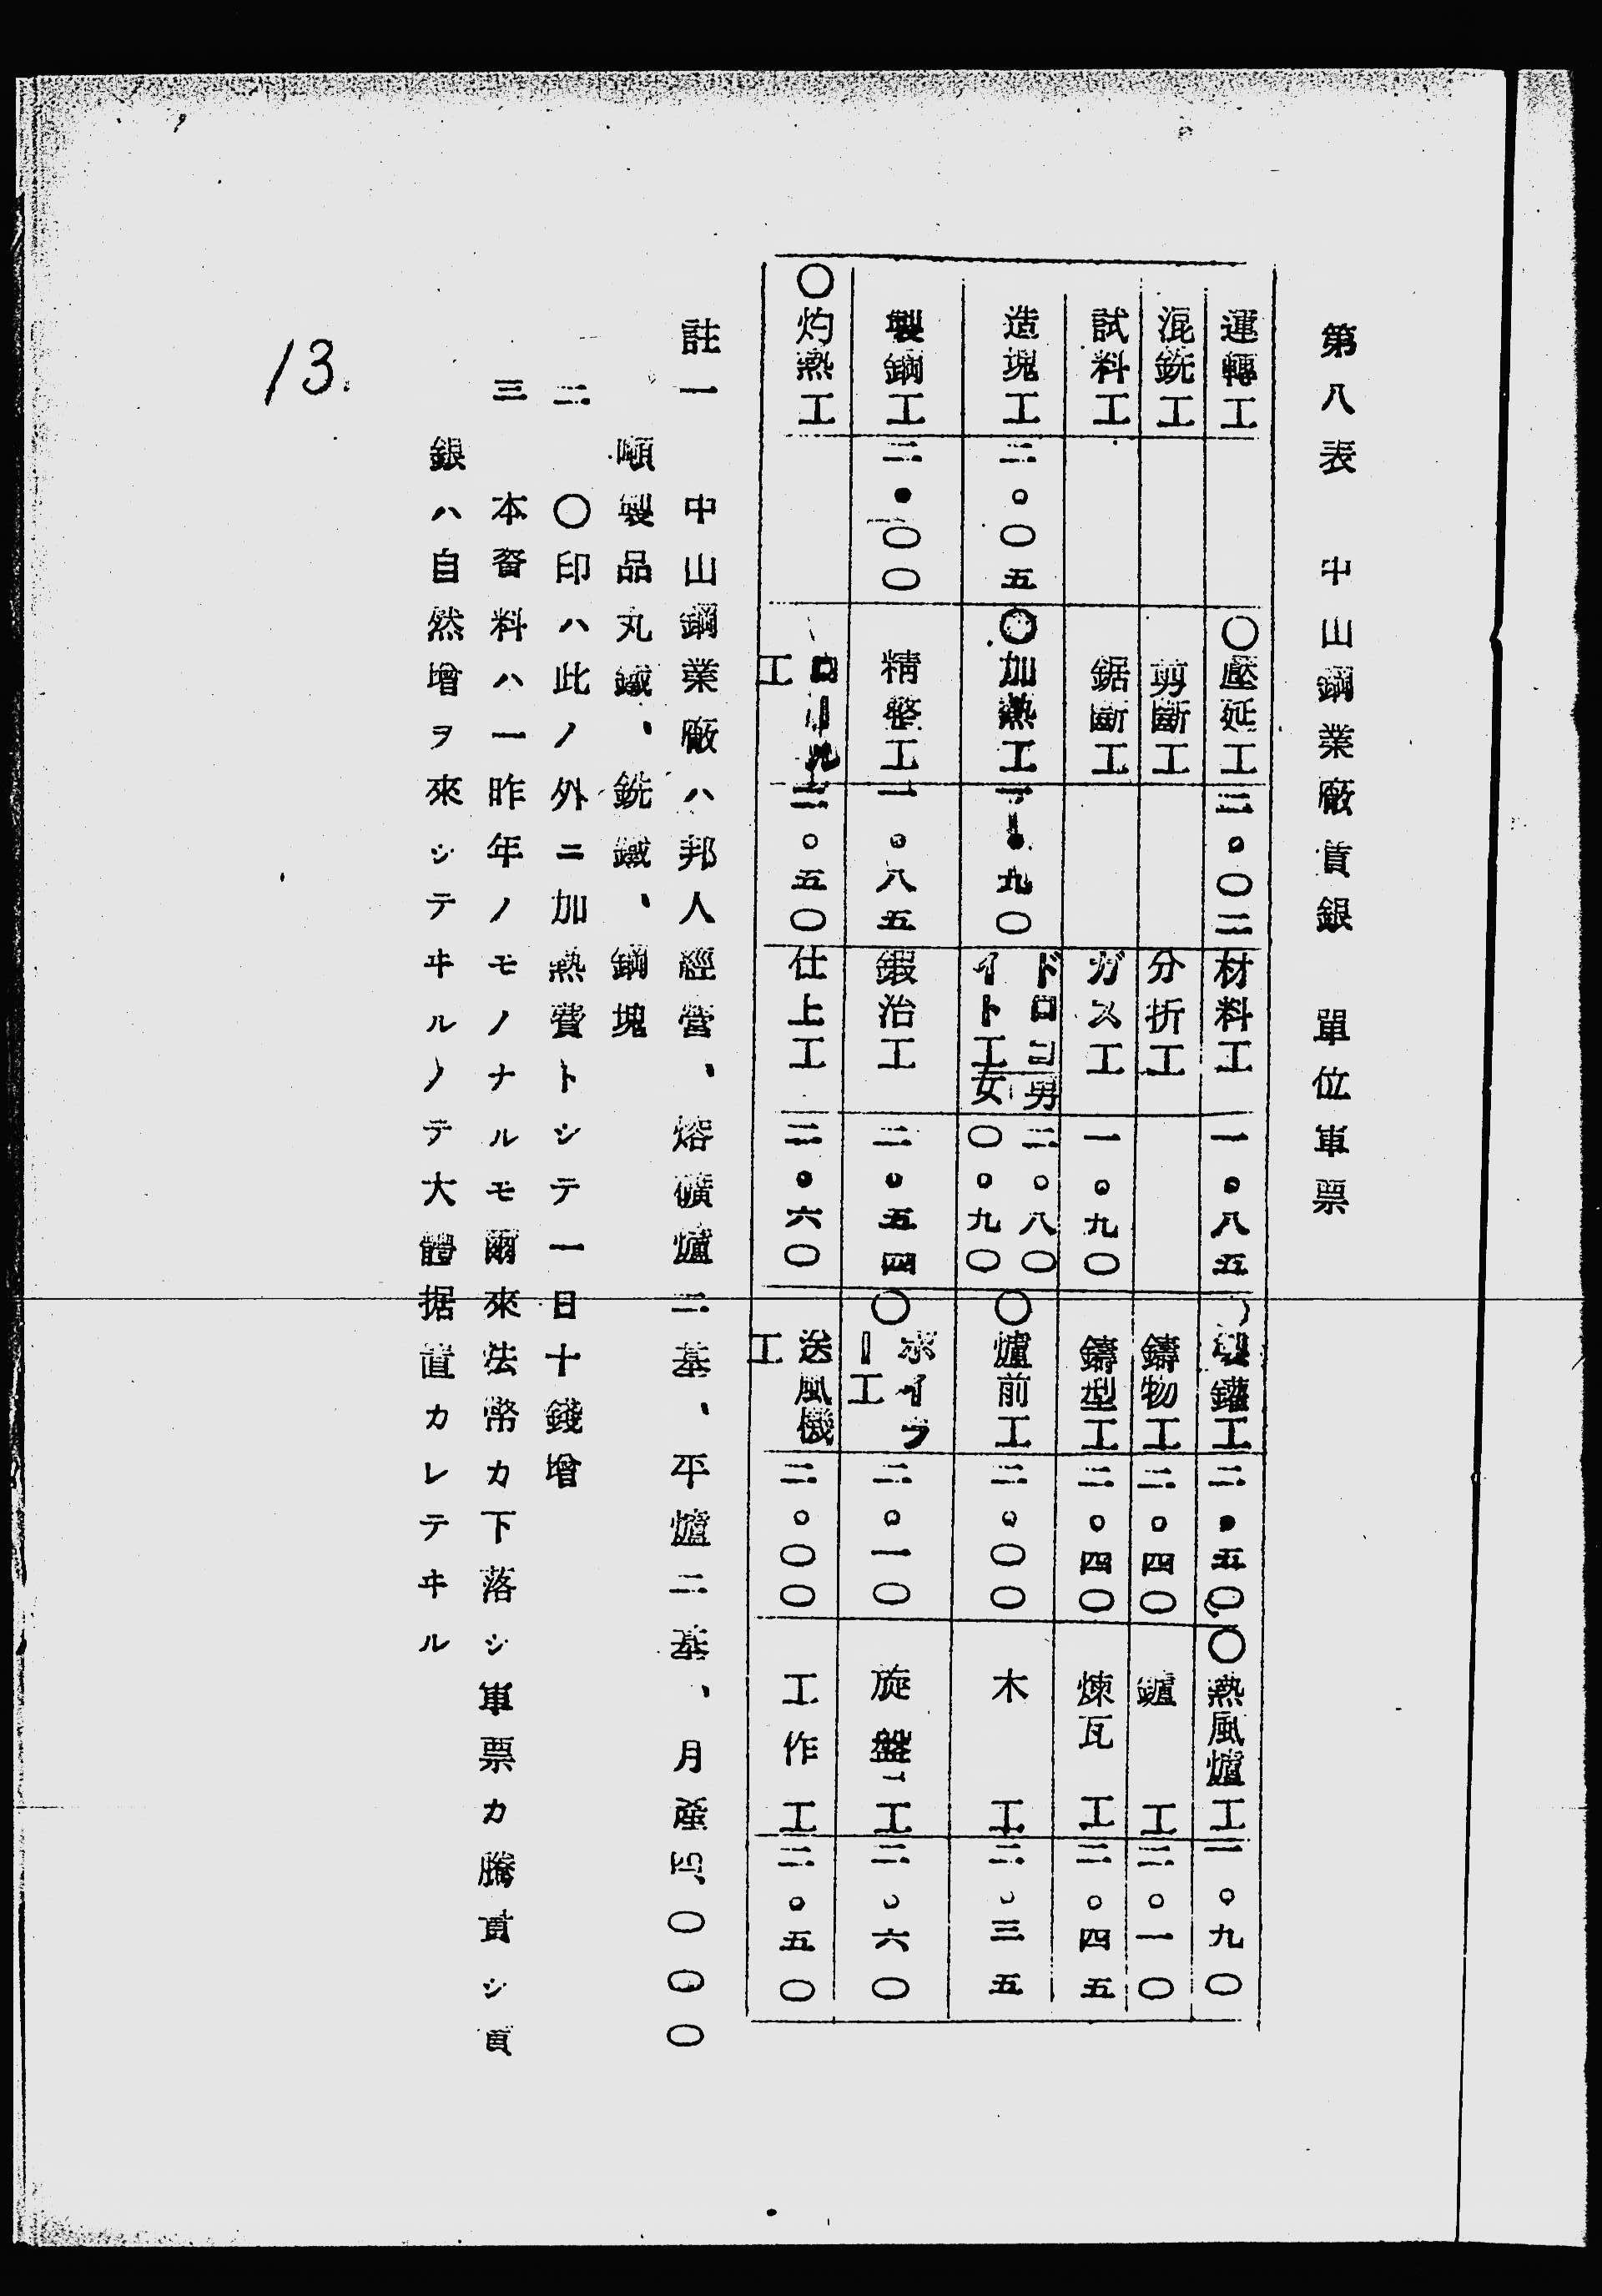 第八表　中山鋼業廠賃銀　單位軍票
運轉工　〇壓延工　二。〇二　材料工　一。八五　鑵工　二。五〇　〇熱風爐工　一。九〇
混銑工　剪斷工　分折工　鑄物工　二。四〇　鑢工　二。一〇
試料工　鋸斷工　ガス工　一。九〇　鑄型工　二。四〇　煉瓦工　二。四五
造塊工　二。〇五　〇加熱工　一。九〇　ドロマイト工　男　二。八〇　女　〇。九〇　〇爐前工　二。〇〇　木工　二。三五
製鋼工　二。〇〇　精整工　一。八五　鍛治工　二。五四　〇ボイラー工　二。一〇　旋盤工　二。六〇
〇灼熱工　ロール工　二。五〇　仕上工　二。六〇　送風機工　二。〇〇　工作工　二。五〇
註一　中山鋼業廠ハ邦人經營、熔礦爐二基、平爐二基、月産〇〇〇
噸製品丸鐵、銑鐵、鋼塊
二　〇印ハ此ノ外ニ加熱費トシテ一日十錢增
三　本資料ハ一昨年ノモノナルモ爾來法幣カ下落シ軍票カ騰貴シ賃
銀ハ自然增ヲ來シテヰルノテ大體据置カレテヰル
13.